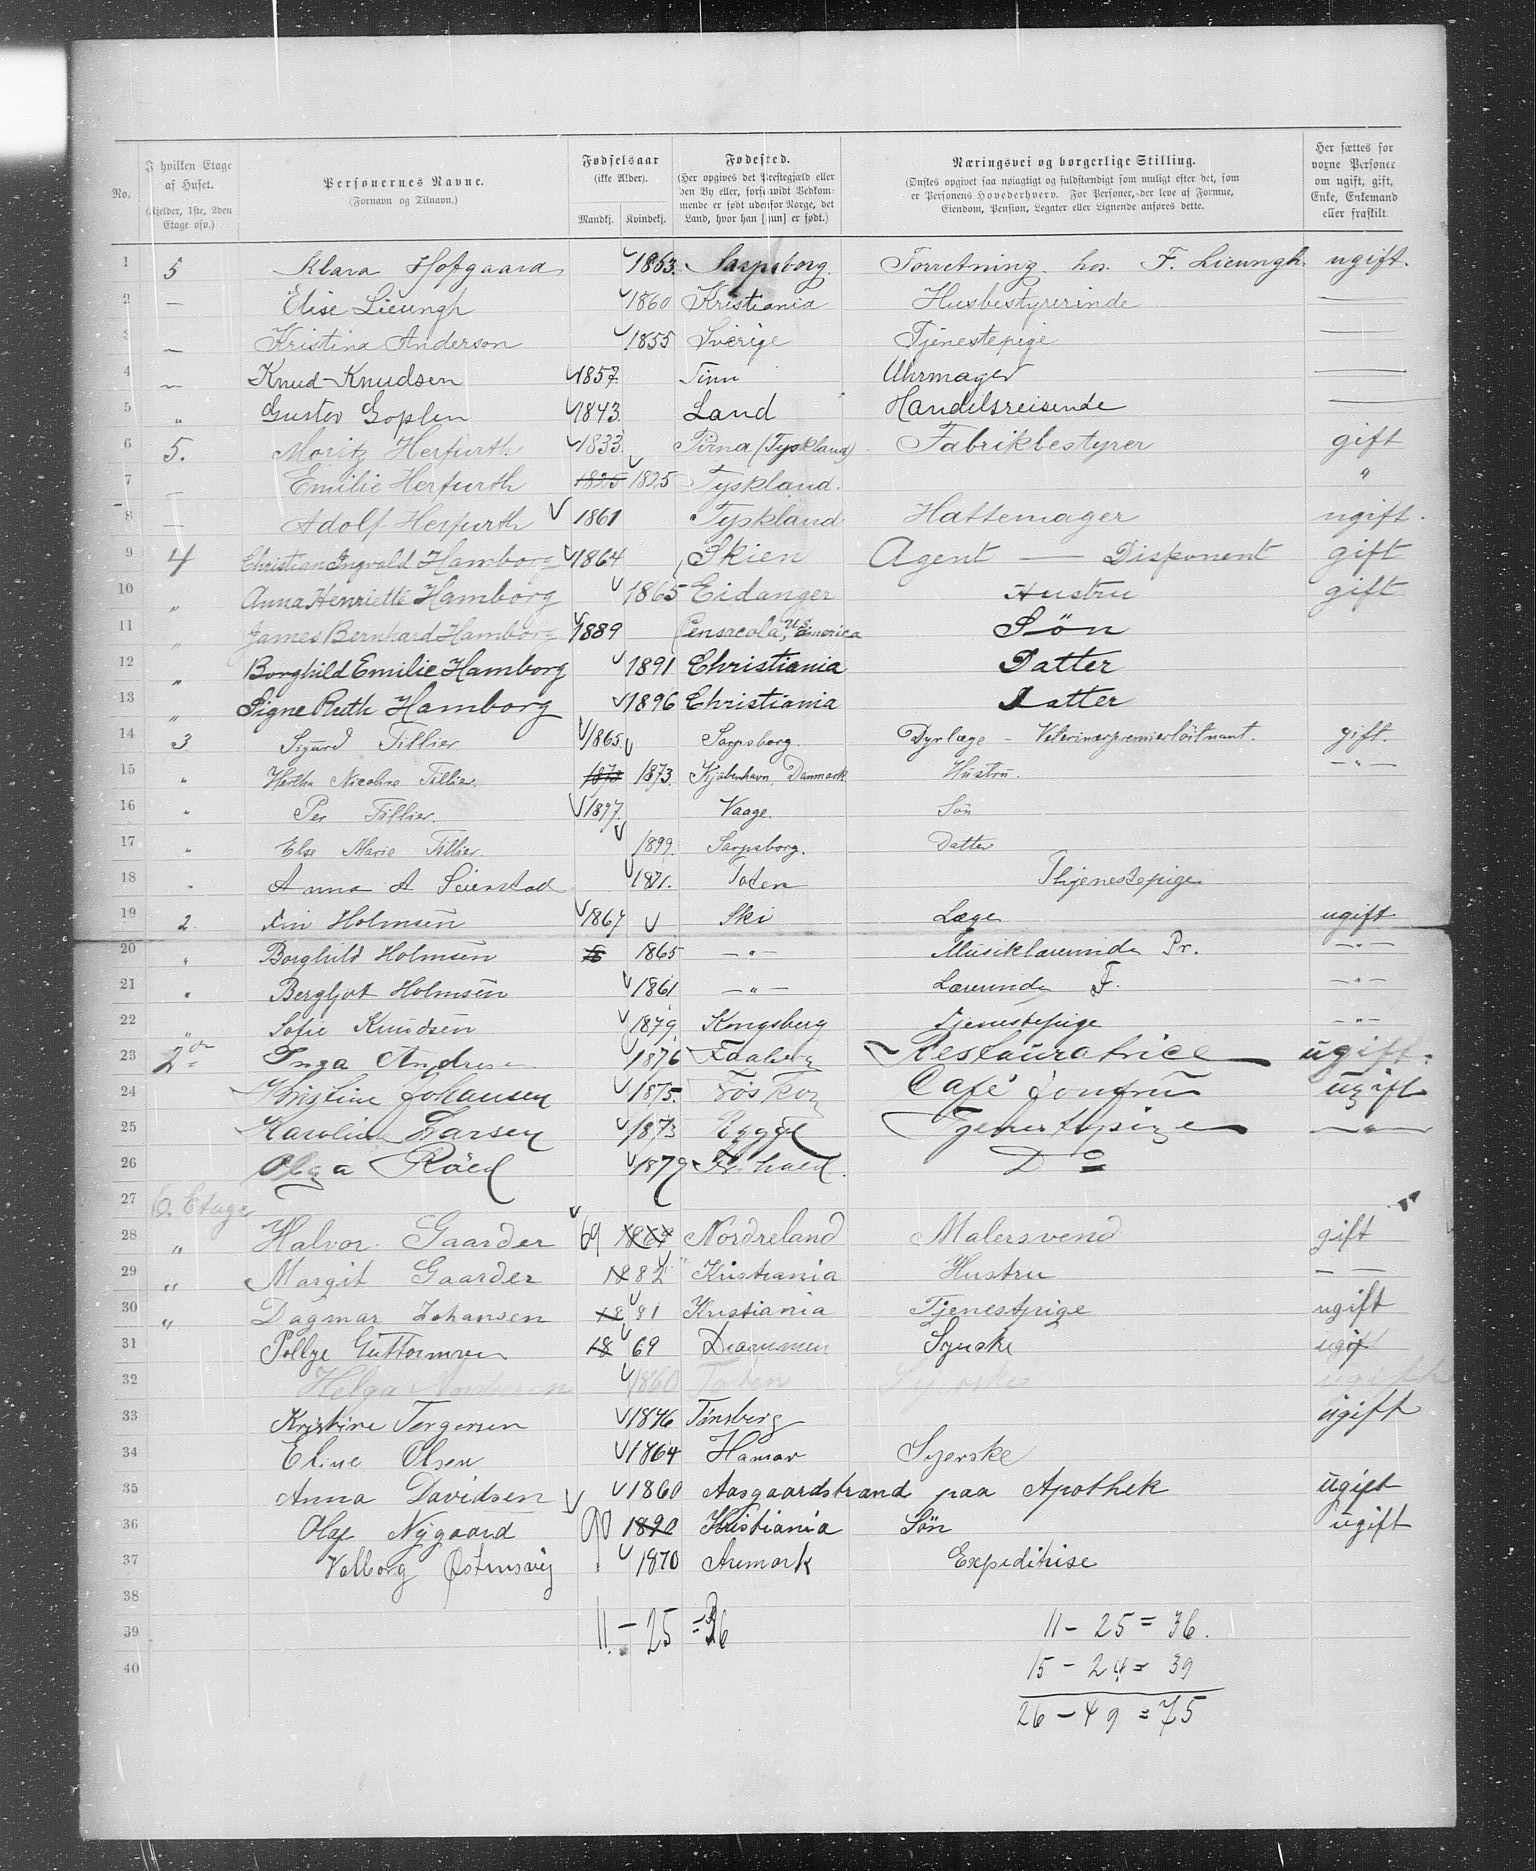 No. | I hvilken Etage af Huset. (Kjelder, 1ste, 2den Etage osv.) | Personernes Navne. (Fornavn og Tilnavn.) | Fødselsaar (ikke Alder). Mandkj. Kvindekj. | Fødested. (Her opgives det Prestegjeld eller den By eller, forsaavidt Vedkommende er født udenfor Norge, det Land, hvor han [hun] er født.) | Næringsvei og borgerlige Stilling. (Ønskes opgivet saa nøiagtigt og fuldstændigt som muligt efter det, som er Personens Hovederhverv. For Personer, der leve af Formue, Eiendom, Pension, Legater eller Lignende anføres dette. | Her sættes for voxne Personer om ugift, gift, Enke, Enkemand eller fraskilt.
1 5 Klara Hofgaard 1863. Sarpsborg. Forretning hos F. Lieungh ugift.
2 — Elise Lieungh 1860 Kristiania Husbestyrerinde —
3 — Kristina Anderson 1855 Sverige Tjenestepige —
4 — Knud Knudsen 1857. Tinn Uhrmager —
5 „ Gustav Goplen 1843. Land Handelsreisende —
6 5. Moritz Herfurth 1833. Pirna (Tyskland) Fabrikbestyrer gift
7 — Emilie Herfurth 1825 1825 Tyskland. "
8 — Adolf Herfurth 1861 Tyskland Hattemager ugift.
9 4 Christian Ingvald Hamborg 1864 Skien Agent — Disponent gift
10 „ Anna Henriette Hamborg 1865 Eidanger Hustru gift
11 „ James Bernhard Hamborg 1889 Pensacola, U.S. America Søn
12 „ Borghild Emilie Hamborg 1891 Christiania Datter
13 „ Signe Ruth Hamborg 1896 Christiania Datter
14 3 Sigurd Tillier 1865 Sarpsborg. Dyrlæge - Veterinærpremierløitnant. gift.
15 " Hertha Nicoline Tillier. 1873 1873. Kjøbenhavn, Danmark Hustru. — " —
16 " Per Tillier. 1897. Vaage. Søn
17 " Else Marie Tillier. 1899. Sarpsborg. Datter
18 " Anna A Seierstad 1871. Toten Thjenestepige
19 2. Holmsen 1867 Ski Læge ugift
20 " Borghild Holmsen 18 1865 — " — Musiklærerinde Pr. — " —
21 " Bergljot Holmsen 1861 — " — Lærerinde F. — " —
22 „ Sofie Knudsen 1879 Kongsberg Tjenestepige — " —
23 2 Inga Andresen 1876 Faaberg Restauratrice ugift.
24 Kristine Johansen 1875. Café Jomfru ugift
25 Karoline Larsen 1873 Tjenestepige — " —
26 Olga Röed 1879 Fr. hald. Do
27 6. Etage
28 „ Halvor Gaarder 69 1869 Nordreland Malersvend gift
29 „ Margit Gaarder 18 82 Kristiania Hustru — —
30 „ Dagmar Johansen 18 81 Kristiania Tjenestpige ugift
31 Guttormsen 18 69 Drammen Syerske ugif
32 Helga 1860 Toten Syerske ugift
33 Kristine Torgersen 1846 Tønsberg ugift
34 Eline Olsen 1864 Hamar Syerske
35 Anna Davidsen 1860 Aasgaardstrand paa Apothek ugift
36 Olaf Nygaard 90 1890 Kristiania Søn ugift
37 Valborg Østensvig 1870 Aremark Expeditrise
38
39 11 – 25 = 36 11 – 25 = 36.
40 15 – 24 = 39
26 – 49 = 75